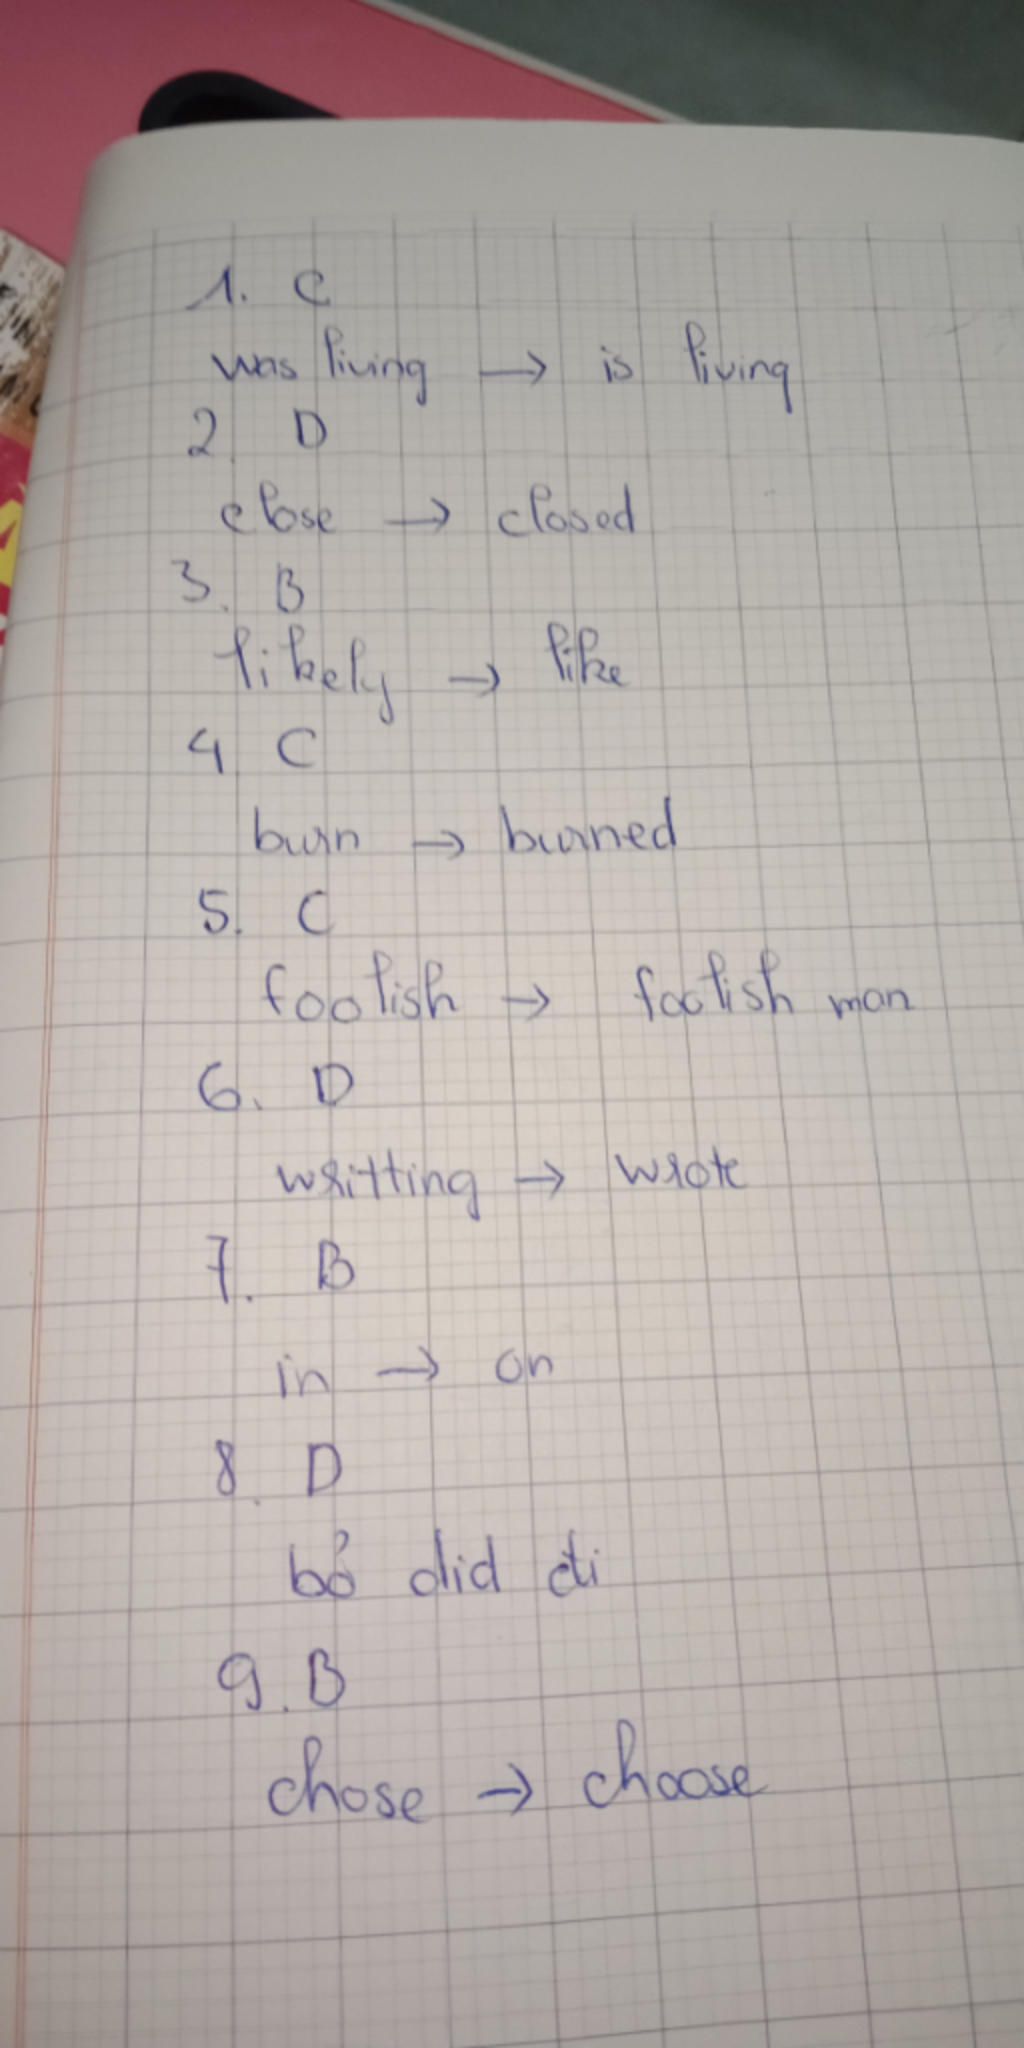 1. C
was living → is living
2. D
close → closed
3. B
likely → like
4 C
burn → burned
5. C
foolish → foolish man
6. D
writting → wrote
7. B
in → on
8. D
bỏ did đi
9. B
chose → choose